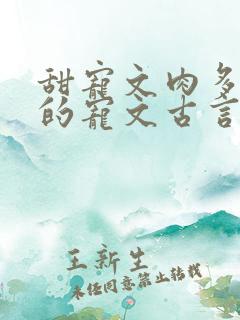 甜宠文肉多
的宠文古言
王新生
未经同意禁止转载